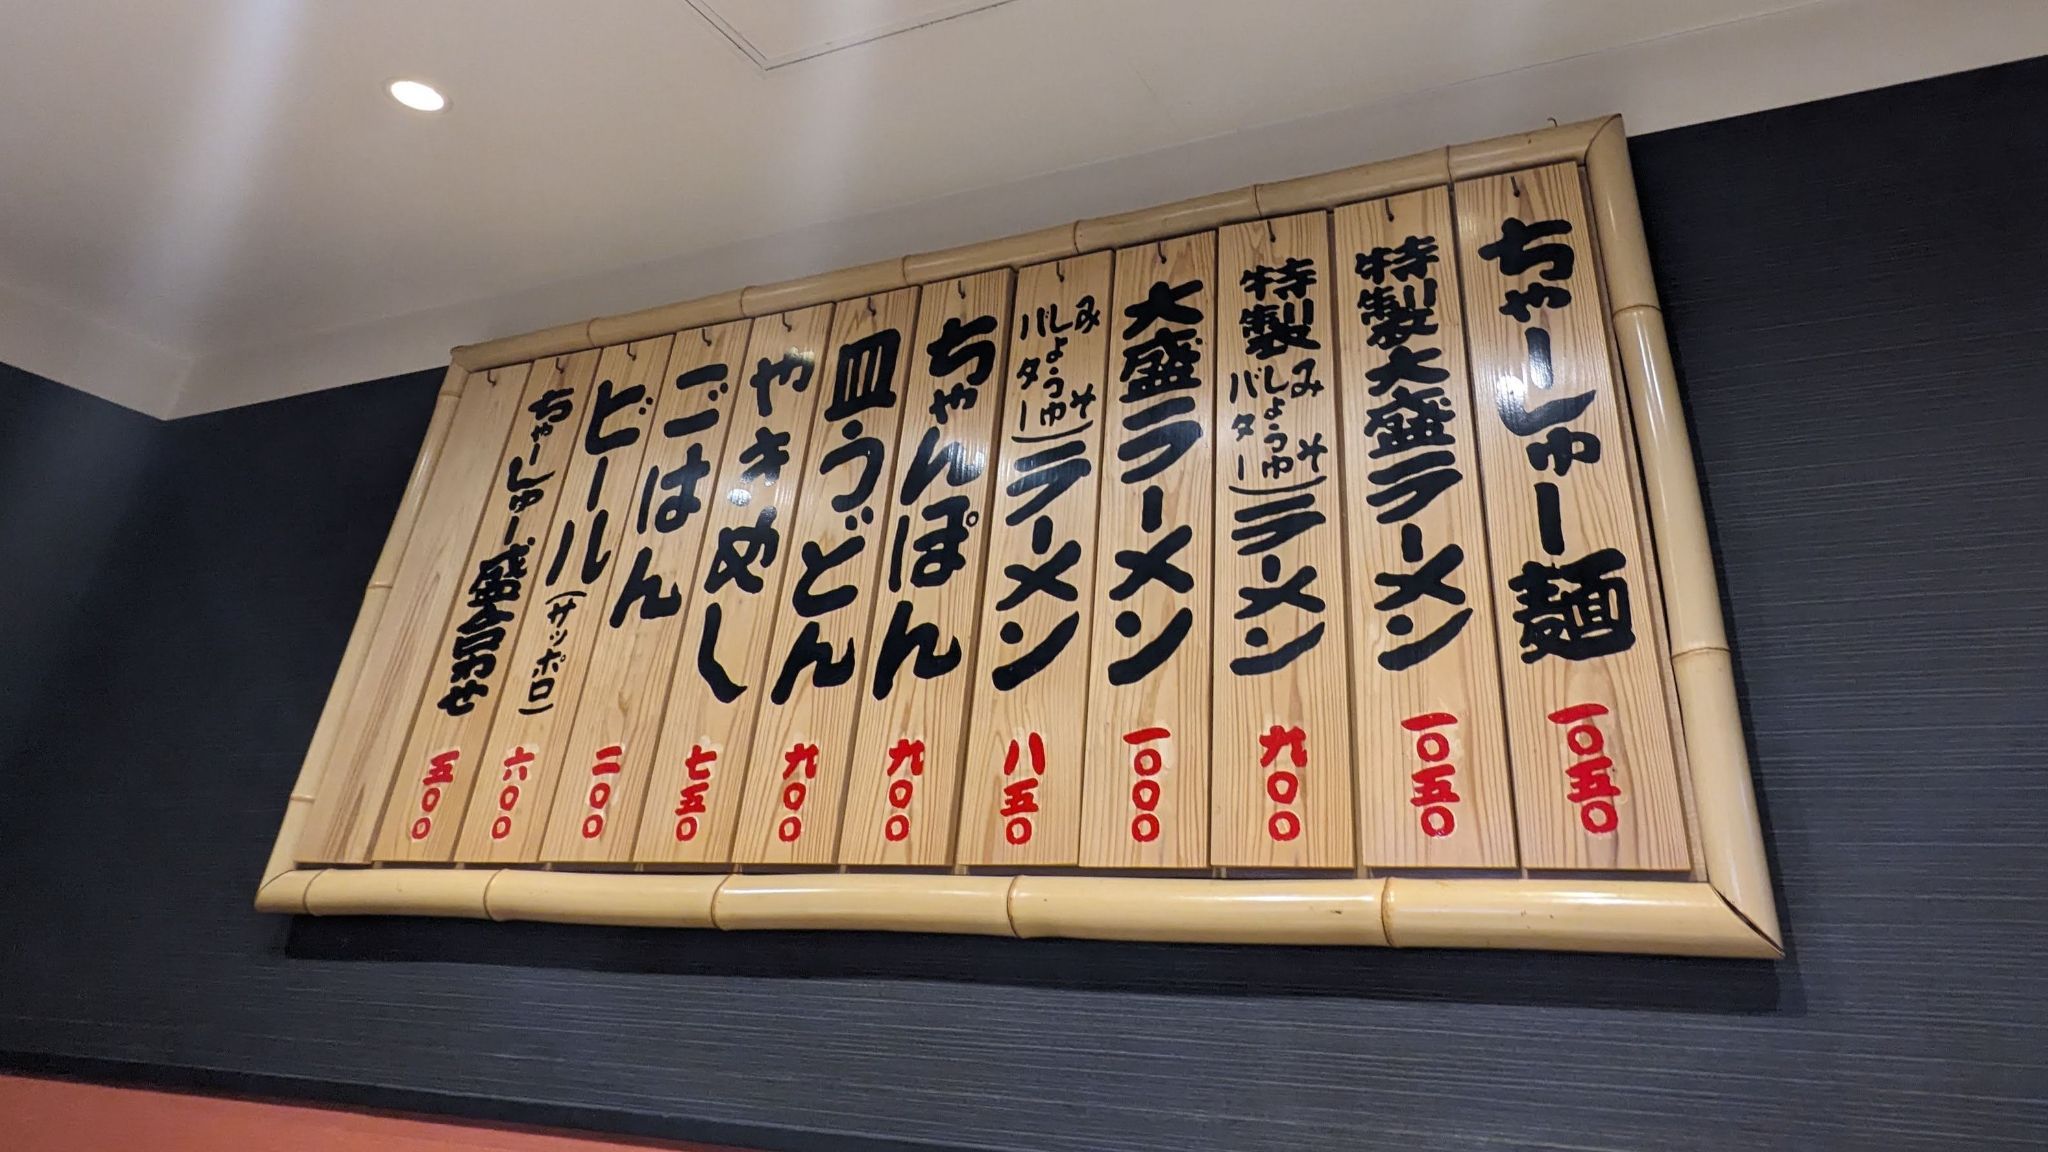 ちゃーしゅー麺 一〇五〇
特製大盛ラーメン 一〇五〇
特製(みそ しょうゆ バター)ラーメン 九〇〇
大盛ラーメン 一〇〇〇
(みそ しょうゆ バター)ラーメン 八五〇
ちゃんぽん 九〇〇
皿うどん 九〇〇
やきめし 七五〇
ごはん 二〇〇
ビール(サッポロ) 六〇〇
ちゃーしゅー盛合わせ 五〇〇